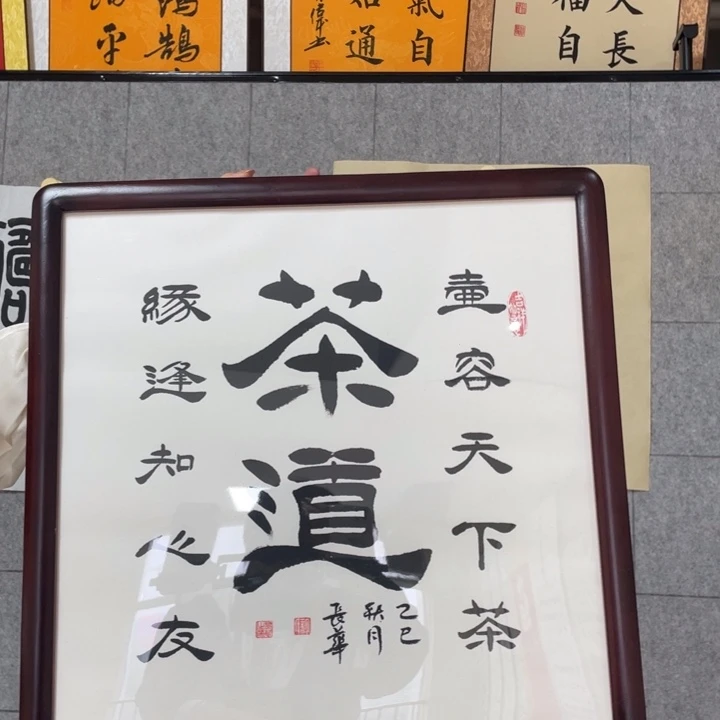 鴻鵠
平
氣自
如通
天長
福自
壺容天下茶
茶道
緣逢知心友
乙巳
秋月
長華